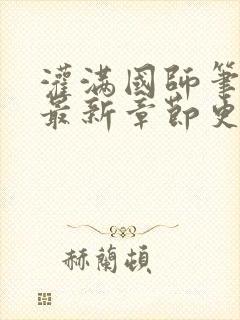 灌满國師筆
最新章節史
赫蘭頓